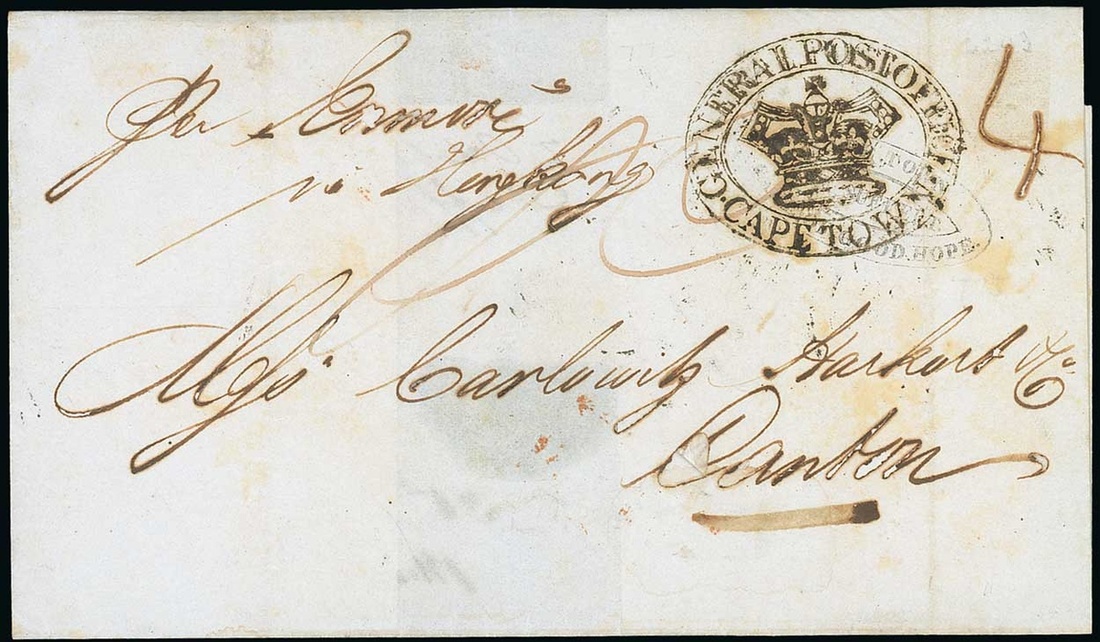 GENERAL POST OFFICE.
CAPE TOWN.
4
Per
via Hongkong
TO
OD. HOPE.
Messrs Carlowitz Harkort & Co
Canton